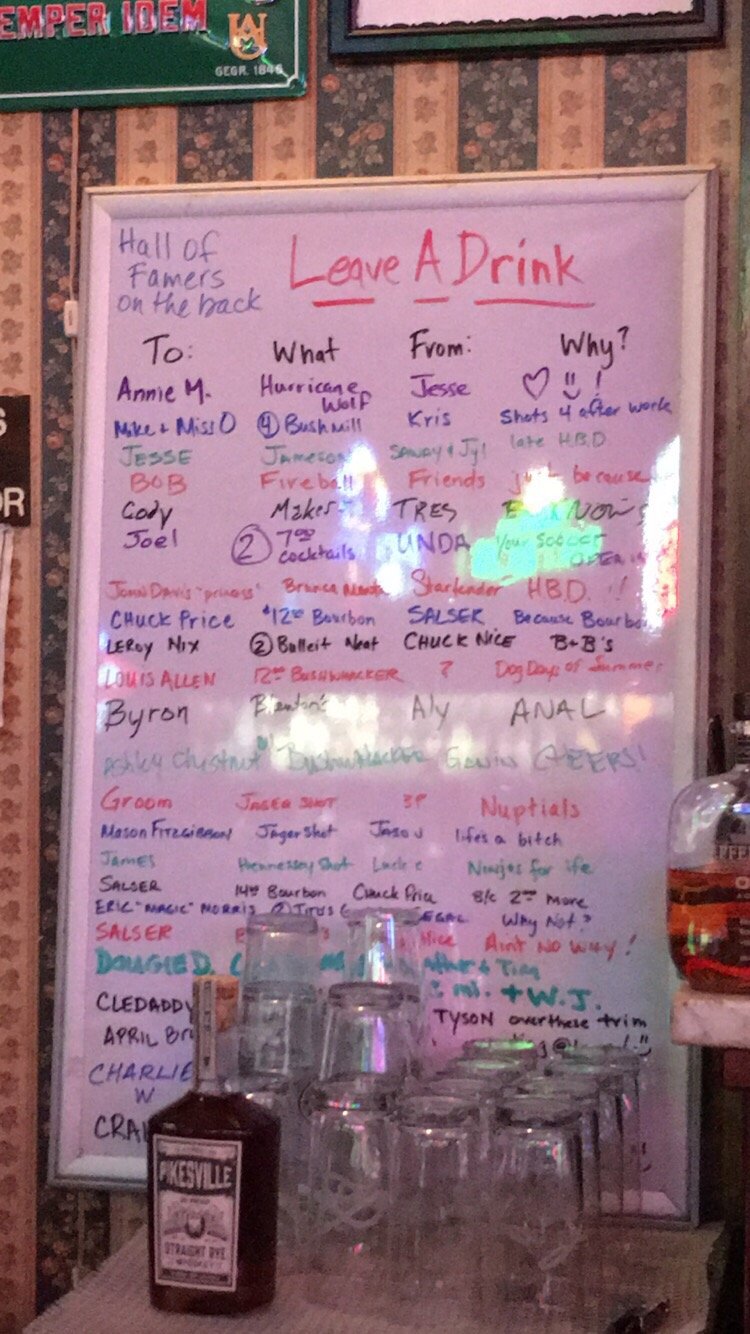 SEMPER IDEM
GEGR. 1846
S
OR
Hall of
Famers
on the back
Leave A Drink
To: What From: Why?
Annie M. Hurricane Wolf Jesse ♡ !
Mike + Miss O ④ Bushmill Kris Shots 4 after work
JESSE Jameson SANDY + Jyl late H.B.D
BOB Fireball Friends just because
Cody Makers TRES
Joel ② 7⁰⁰ cocktails UNDA Your SOCCER
John Davis "princess" Branca Menta Startender H.B.D. !!
CHUCK Price $12⁰⁰ Bourbon SALSER Because Bourbon
LEROY NIX ② Bulleit Neat CHUCK NICE B+B's
LOUIS ALLEN 12⁰⁰ BUSHWHACKER ? Dog Days of Summer
Byron Blanton's Aly ANAL
Ashley Chestnut BushwHACKER GAVIN CHEERS!
Groom JAGER SHOT Nuptials
Mason Fitzgibbon Jager Shot Jason life's a bitch
JAMES Hennessey Shot Ninjas for life
SALSER 14⁰⁰ Bourbon Chuck Price B/c 2⁰⁰ More
ERIC "MAGIC" MORRIS ② Titos EGAL Why Not?
SALSER Nice Ain't No Way!
DOUGIE D. + Tim
+ W.J.
CLEDADDY TYSON over these trim
APRIL
CHARLIE
W
CRA
PIKESVILLE
STRAIGHT RYE
WHISKEY